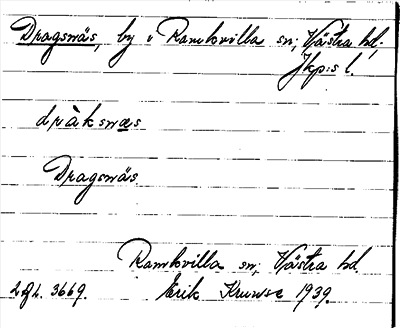 Dragsnäs, by i Ramkvilla sn; Västra hd.
Jkp:s l.
dràksnæs
Dragsnäs.
Ramkvilla sn; Västra hd.
Erik Kruuse 1939.